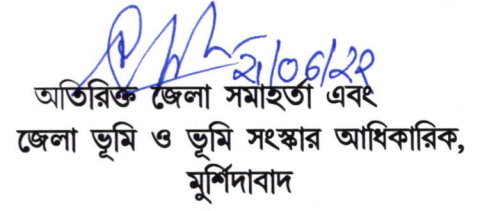 ২১/০৬/২২
অতিরিক্ত জেলা সমাহর্তা এবং
জেলা ভূমি ও ভূমি সংস্কার আধিকারিক,
মুর্শিদাবাদ